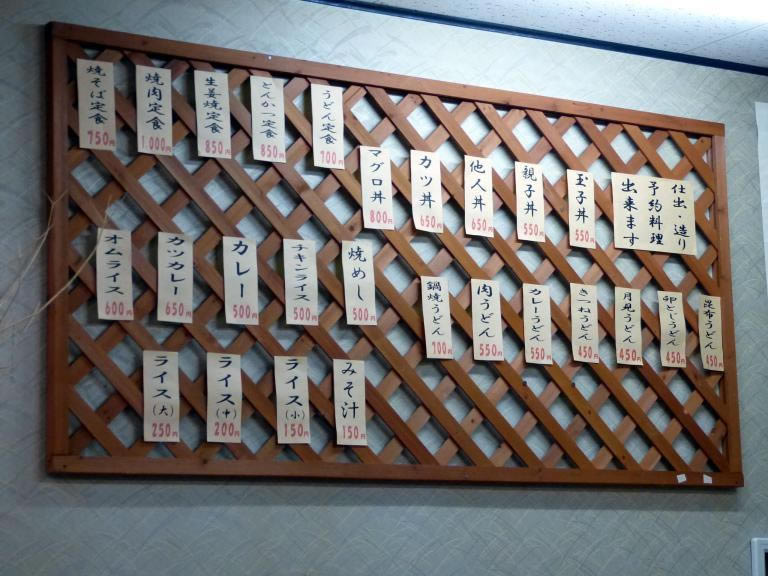 焼そば定食 750円
焼肉定食 1,000円
生姜焼定食 850円
とんかつ定食 850円
うどん定食 700円
マグロ丼 800円
カツ丼 650円
他人丼 650円
親子丼 550円
玉子丼 550円
仕出・造り
予約料理
出来ます
オムライス 600円
カツカレー 650円
カレー 500円
チキンライス 500円
焼めし 500円
鍋焼うどん 700円
肉うどん 550円
カレーうどん 550円
きつねうどん 450円
月見うどん 450円
卵とじうどん 450円
昆布うどん 450円
ライス(大) 250円
ライス(中) 200円
ライス(小) 150円
みそ汁 150円